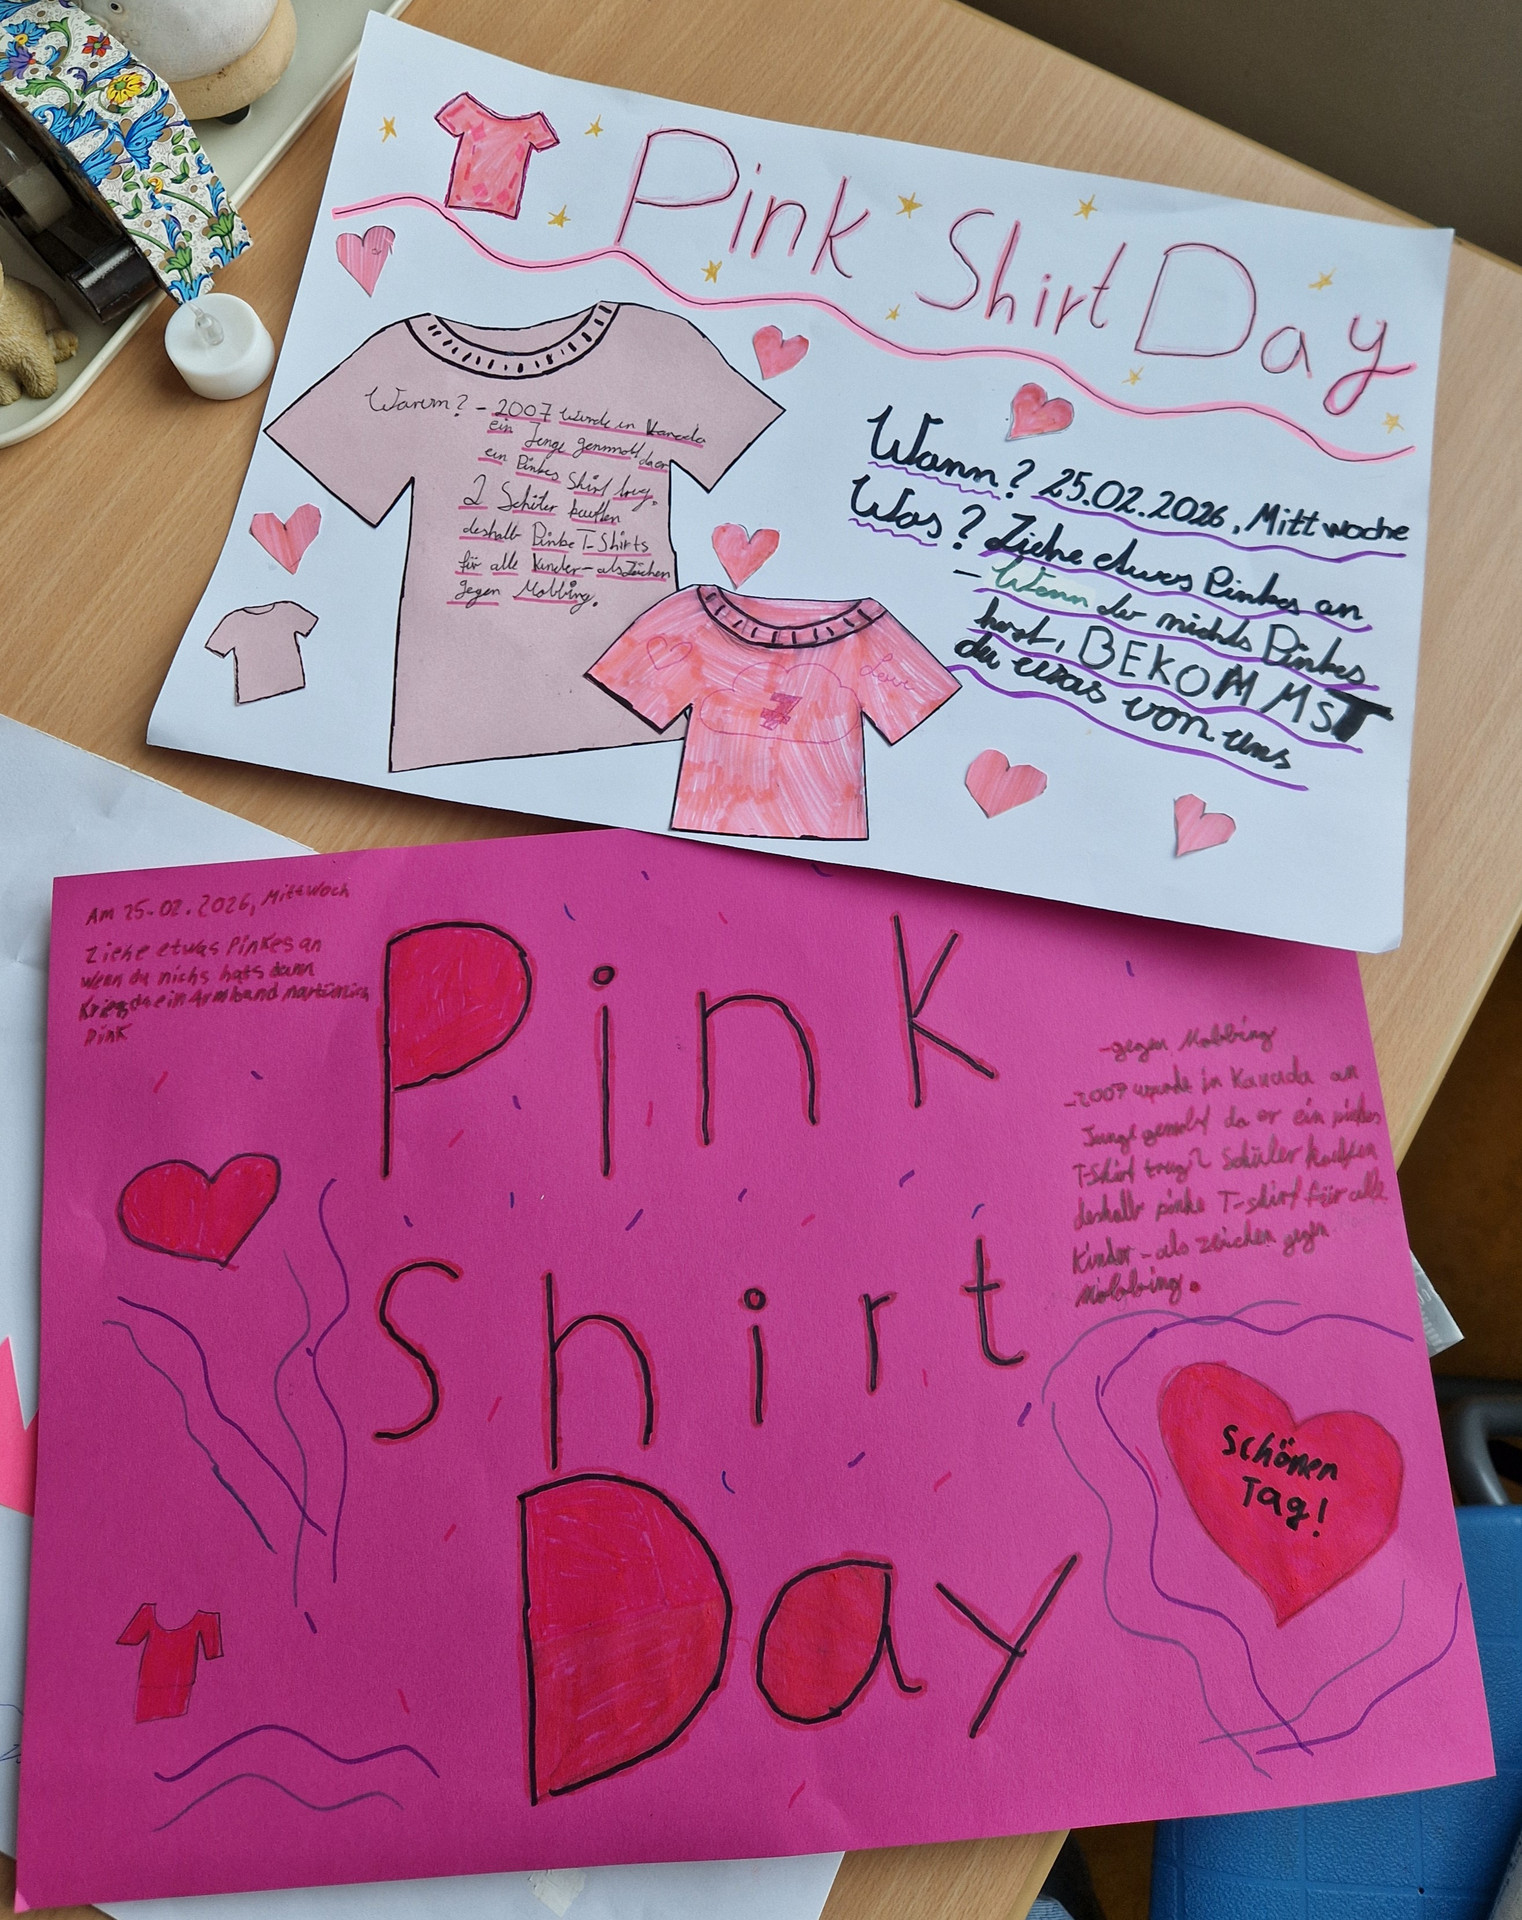 Pink Shirt Day
Warum? - 2007 wurde in Kanada
ein Junge gemmobt da er
ein Pinkes Shirt trug.
2 Schüler kauften
deshalb Pinke T-Shirts
für alle Kinder - als Zeichen
gegen Mobbing.
Wann? 25.02.2026, Mittwoche
Was? Ziehe etwas Pinkes an
- Wenn du nichts Pinkes
hast, BEKOMMST
du etwas von uns
Love
Am 25.02.2026, Mittwoch
Ziehe etwas Pinkes an
wenn du nichs hats dann
Kriegds ein Armband
Pink
Pink
Shirt
Day
- gegen Mobbing
- 2007 wurde in Kanada an
Junge gemobt da er ein pinkes
T-Shirt trug 2 Schüler kauften
deshalb pinke T-shirt für alle
Kinder - als zeichen gegen
Mobbing.
Schönen
Tag!